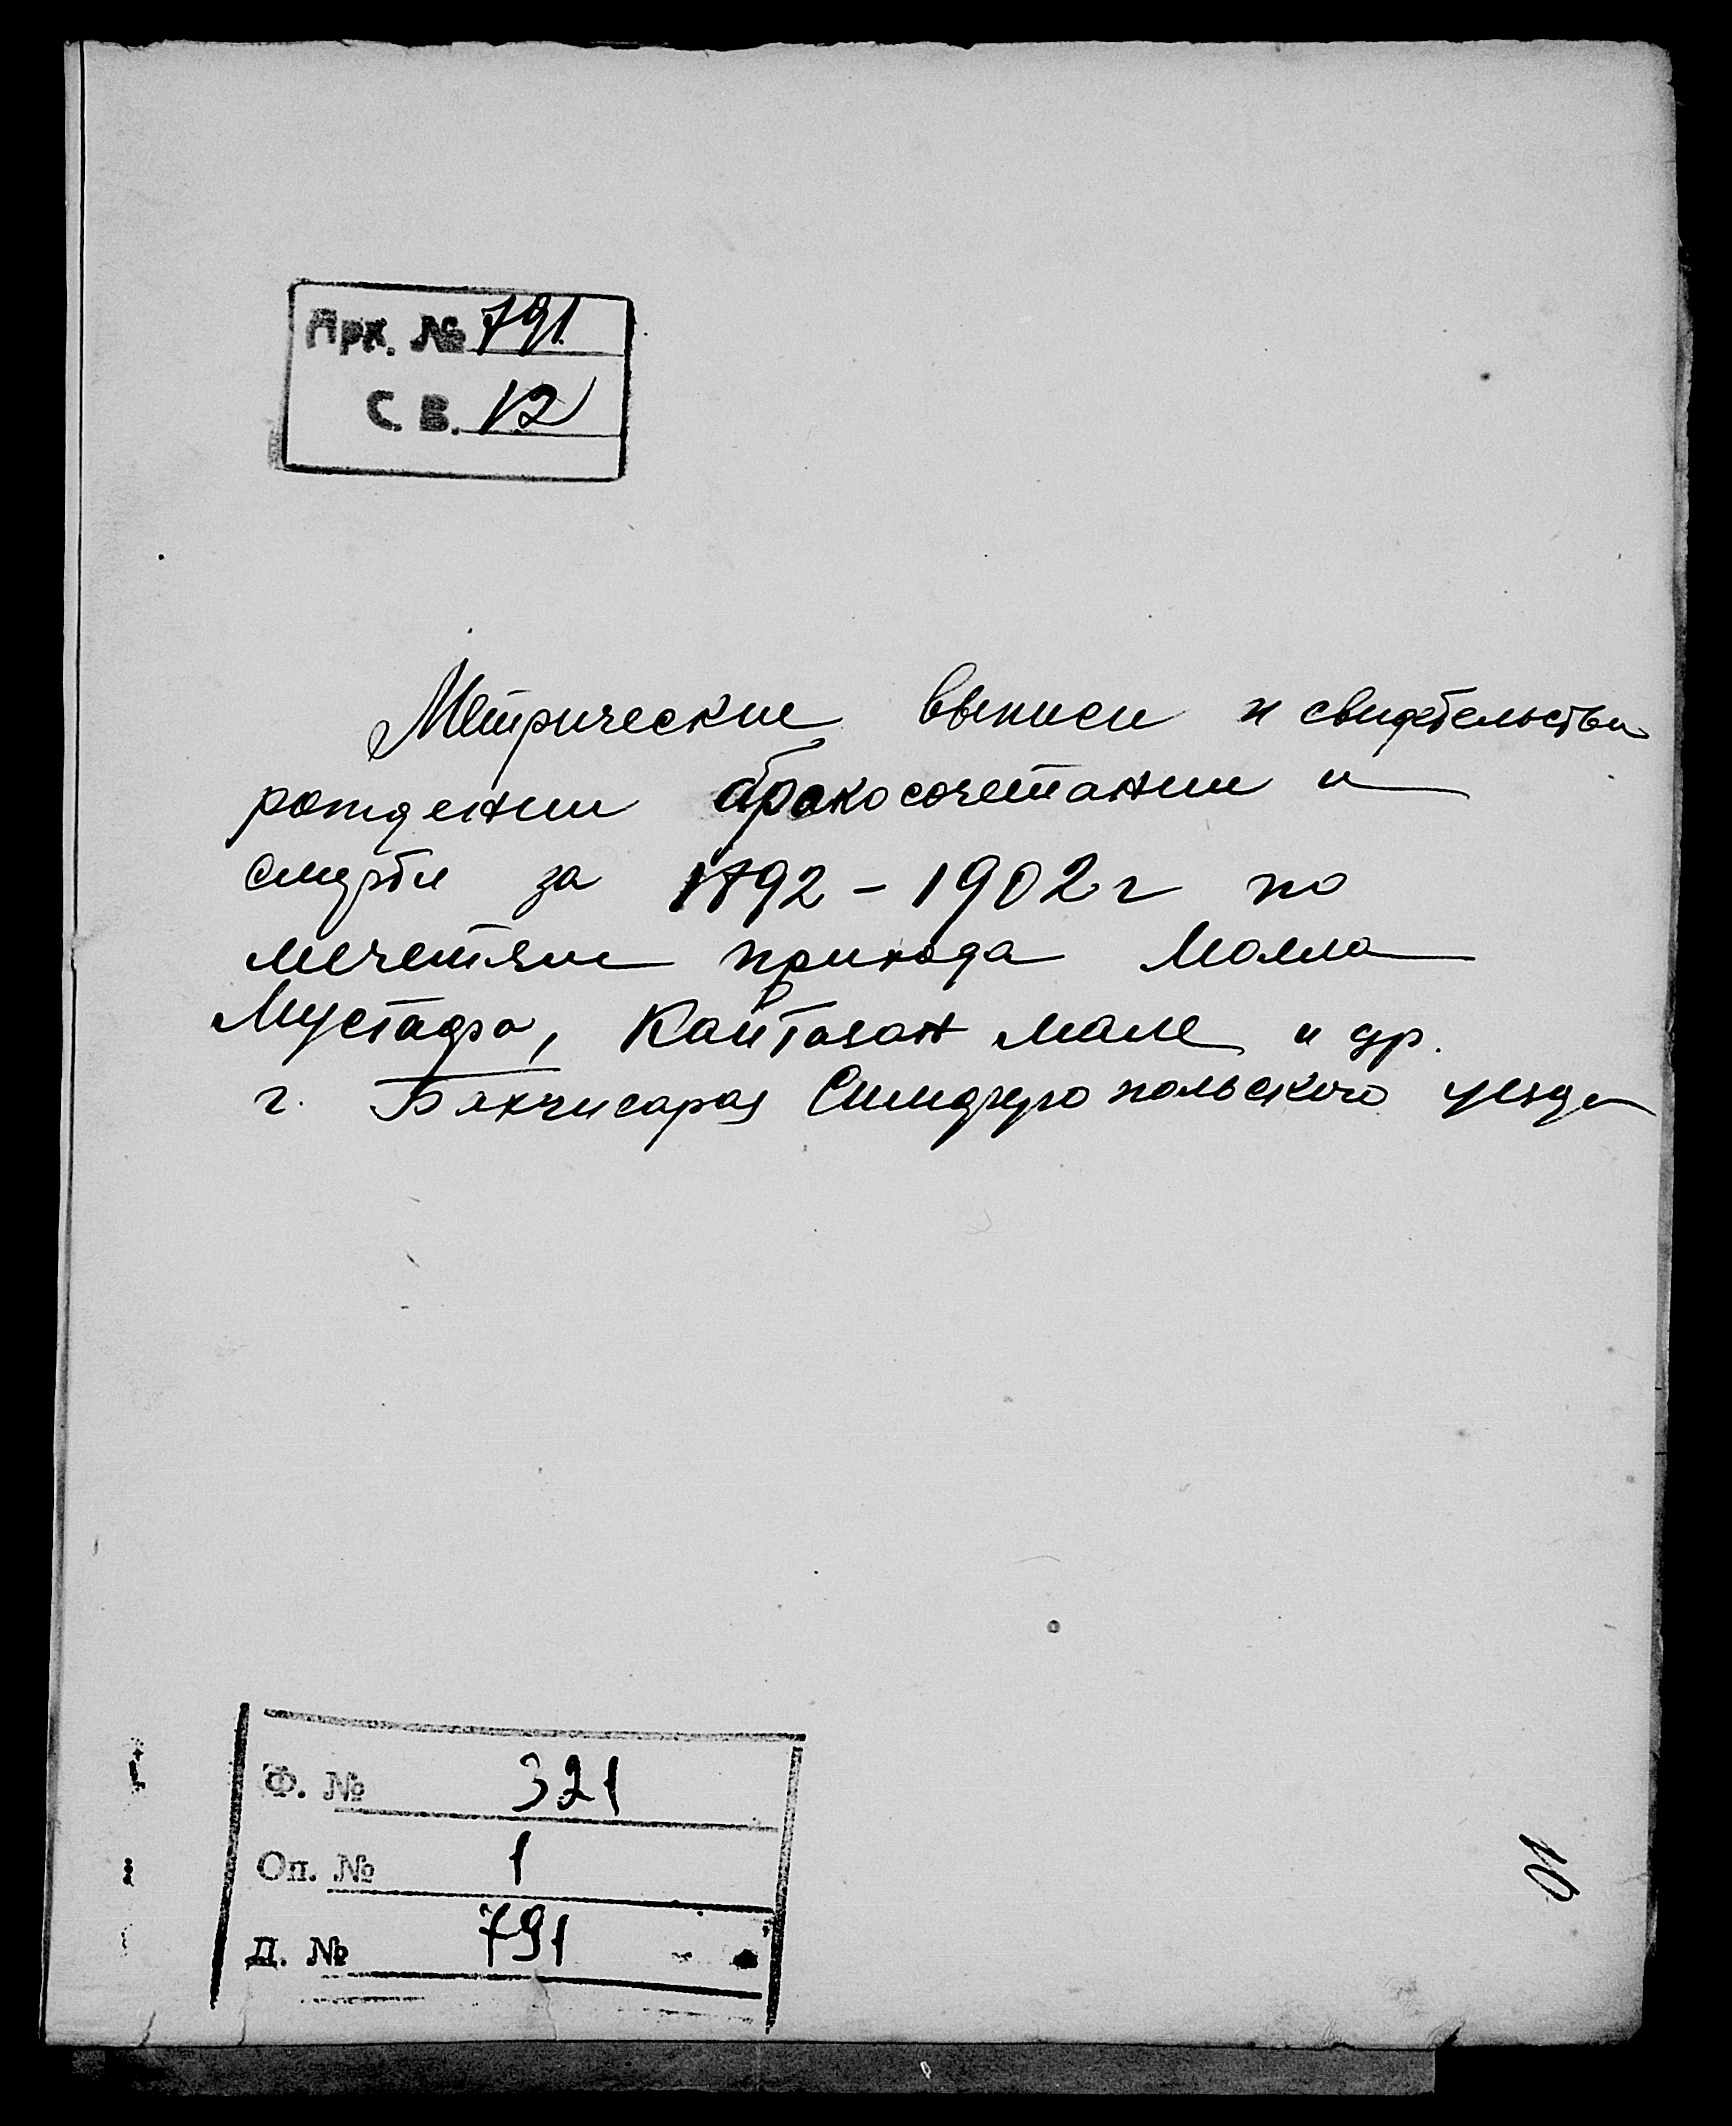 Арх. № 791
С. В. 12
Метрические выписи и свидетельства
рождении бракосочетании и
смерти за 1892 - 1902 г по
мечетям прихода Молла
Мустафа, Кайтазан мале и др.
г. Бахчисарая Симферопольского уезда
Ф. № 321
Оп. № 1
Д. № 791
10